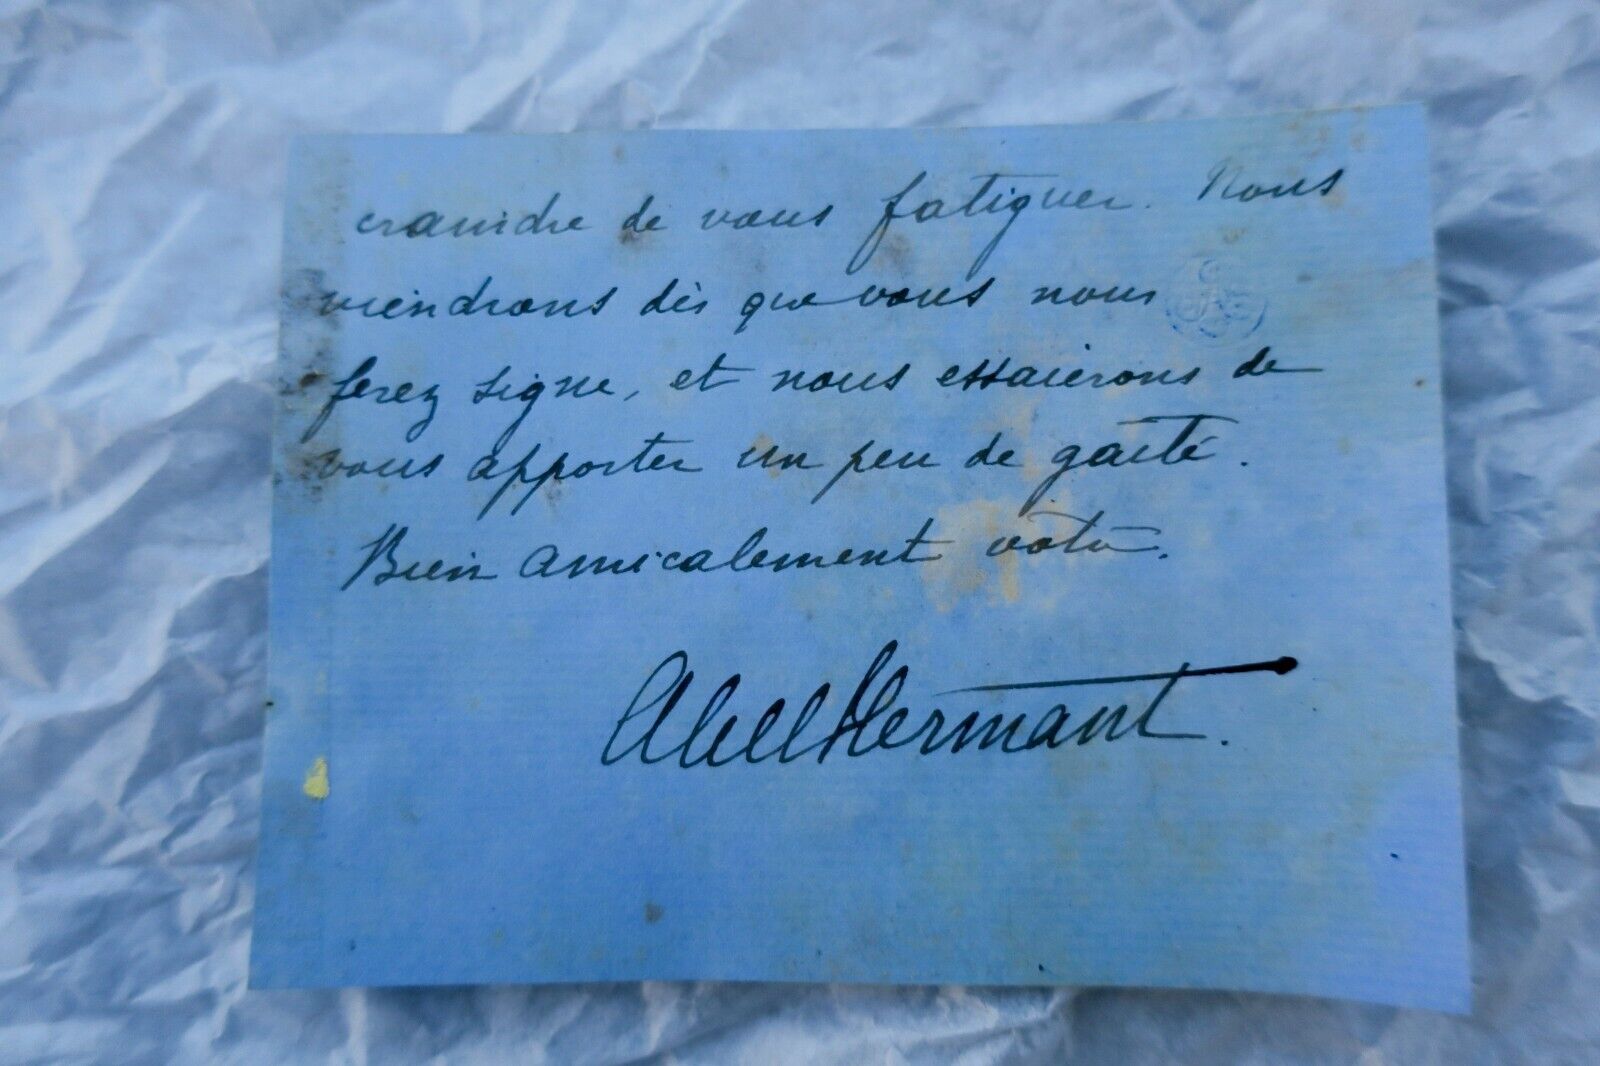 craindre de vous fatiguer. Nous
viendrons dès que vous nous
ferez signe, et nous essaierons de
vous apporter un peu de gaîté.
Bien amicalement votre.
Abel Hermant.